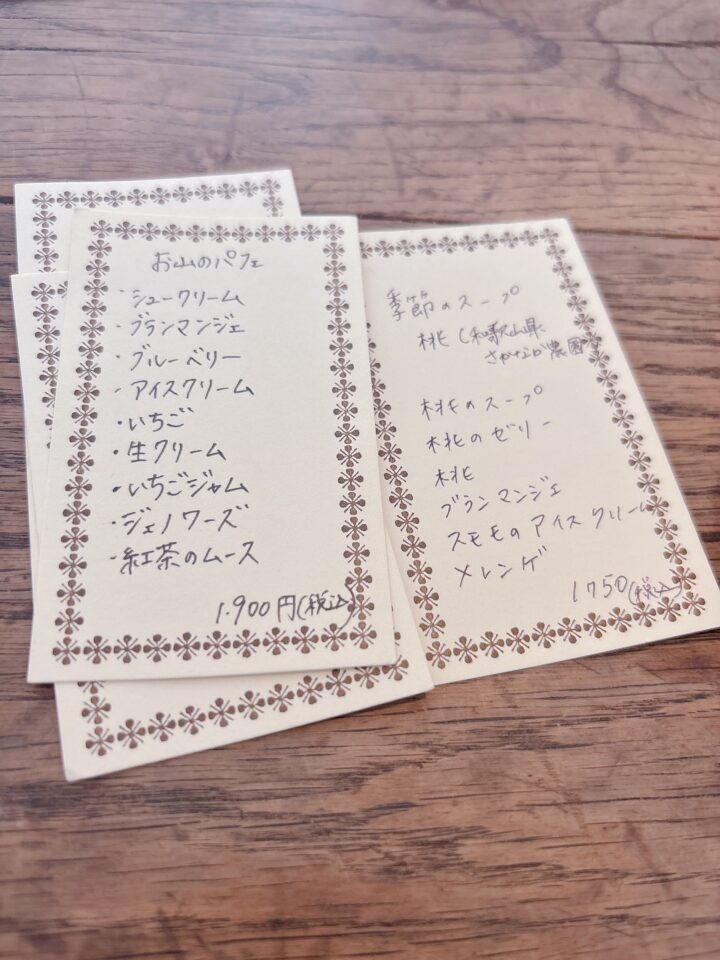 お山のパフェ
・シュークリーム
・ブランマンジェ
・ブルーベリー
・アイスクリーム
・いちご
・生クリーム
・いちごジャム
・ジェノワーズ
・紅茶のムース
1.900円(税込)
季節のスープ
桃(和歌山県
農園
桃のスープ
桃のゼリー
桃
ブランマンジェ
スモモのアイスクリーム
メレンゲ
1750(税込)